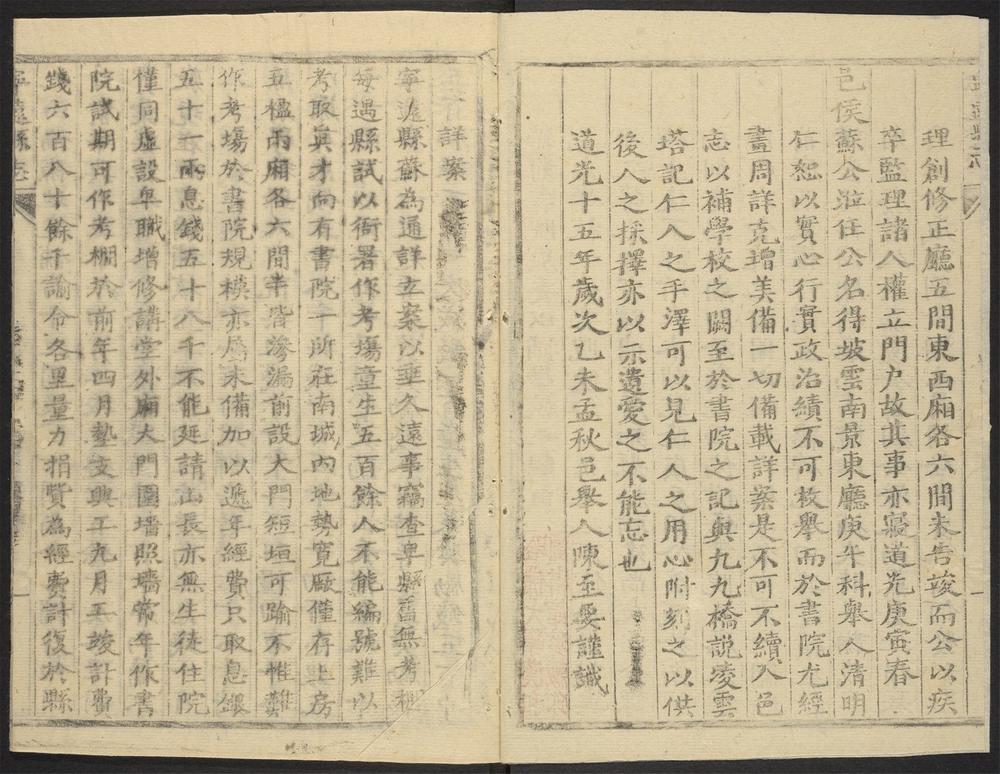 理創修正廳五間東西廂各六間未告竣而公以疾
卒監理諸人權立門戶故其事亦寢道光庚寅春
邑侯蘇公涖任公名得坡雲南景東廳庚午科舉人清明
仁恕以實心行實政治績不可枚舉而於書院尤經
畫周詳克增美備一切備載詳案是不可不續入邑
志以補學校之闕至於書院之記與九九橋說凌雲
塔記仁人之手澤可以見仁人之用心附刻之以供
後人之採擇亦以示遺愛之不能忘也
道光十五年歲次乙未孟秋邑舉人陳至要謹識
詳案
寧遠縣蘇為通詳立案以垂久遠事竊查卑縣舊無考棚
每遇縣試以衙署作考場童生五百餘人不能編號難以
考取真才向有書院一所在南城內地勢寬廠僅存上房
五楹兩廂各六間半皆滲漏前設大門短垣可踰不惟難
作考場於書院規模亦屬未備加以遞年經費只取息銀
五十一兩息錢五十八千不能延請山長亦無生徒住院
僅同虛設卑職增修講堂外廂大門圍墻照墻常年作書
院試期可作考棚於前年四月塾支興工九月工竣計費
錢六百八十餘千諭令各里量力捐貲為經費計復於縣
寧遠縣志